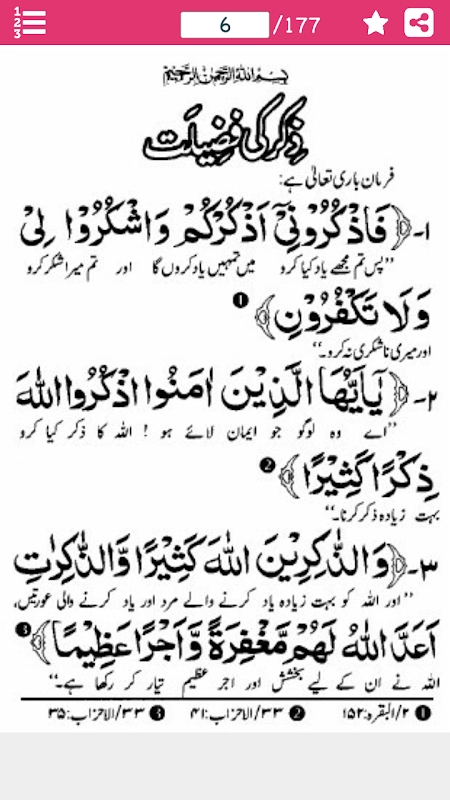 1 2 3
6 /177
بسم الله الرحمن الرحيم
ذِکر کی فضِیلَت
فرمان باری تعالیٰ ہے:
۱- ﴿فَاذْكُرُوْنِيْٓ اَذْكُرْكُمْ وَاشْكُرُوْا لِيْ
’’پس تم مجھے یاد کیا کرو میں تمہیں یاد کروں گا اور تم میرا شکر کرو
وَلَا تَكْفُرُوْنِ﴾ ❶
اور میری ناشکری نہ کرو۔‘‘
۲- ﴿يٰٓاَيُّهَا الَّذِيْنَ اٰمَنُوا اذْكُرُوا اللّٰهَ
’’اے وہ لوگو جو ایمان لائے ہو! اللہ کا ذکر کیا کرو
ذِكْرًا كَثِيْرًا﴾ ❷
بہت زیادہ ذکر کرنا۔‘‘
۳- ﴿وَالذّٰكِرِيْنَ اللّٰهَ كَثِيْرًا وَّالذّٰكِرٰتِ
’’اور اللہ کو بہت زیادہ یاد کرنے والے مرد اور یاد کرنے والی عورتیں،
اَعَدَّ اللّٰهُ لَهُمْ مَّغْفِرَةً وَّاَجْرًا عَظِيْمًا﴾ ❸
اللہ نے ان کے لیے بخشش اور اجر عظیم تیار کر رکھا ہے۔‘‘
❶ ۲/البقرہ:۱۵۲ ❷ ۳۳/الاحزاب:۴۱ ❸ ۳۳/الاحزاب:۳۵